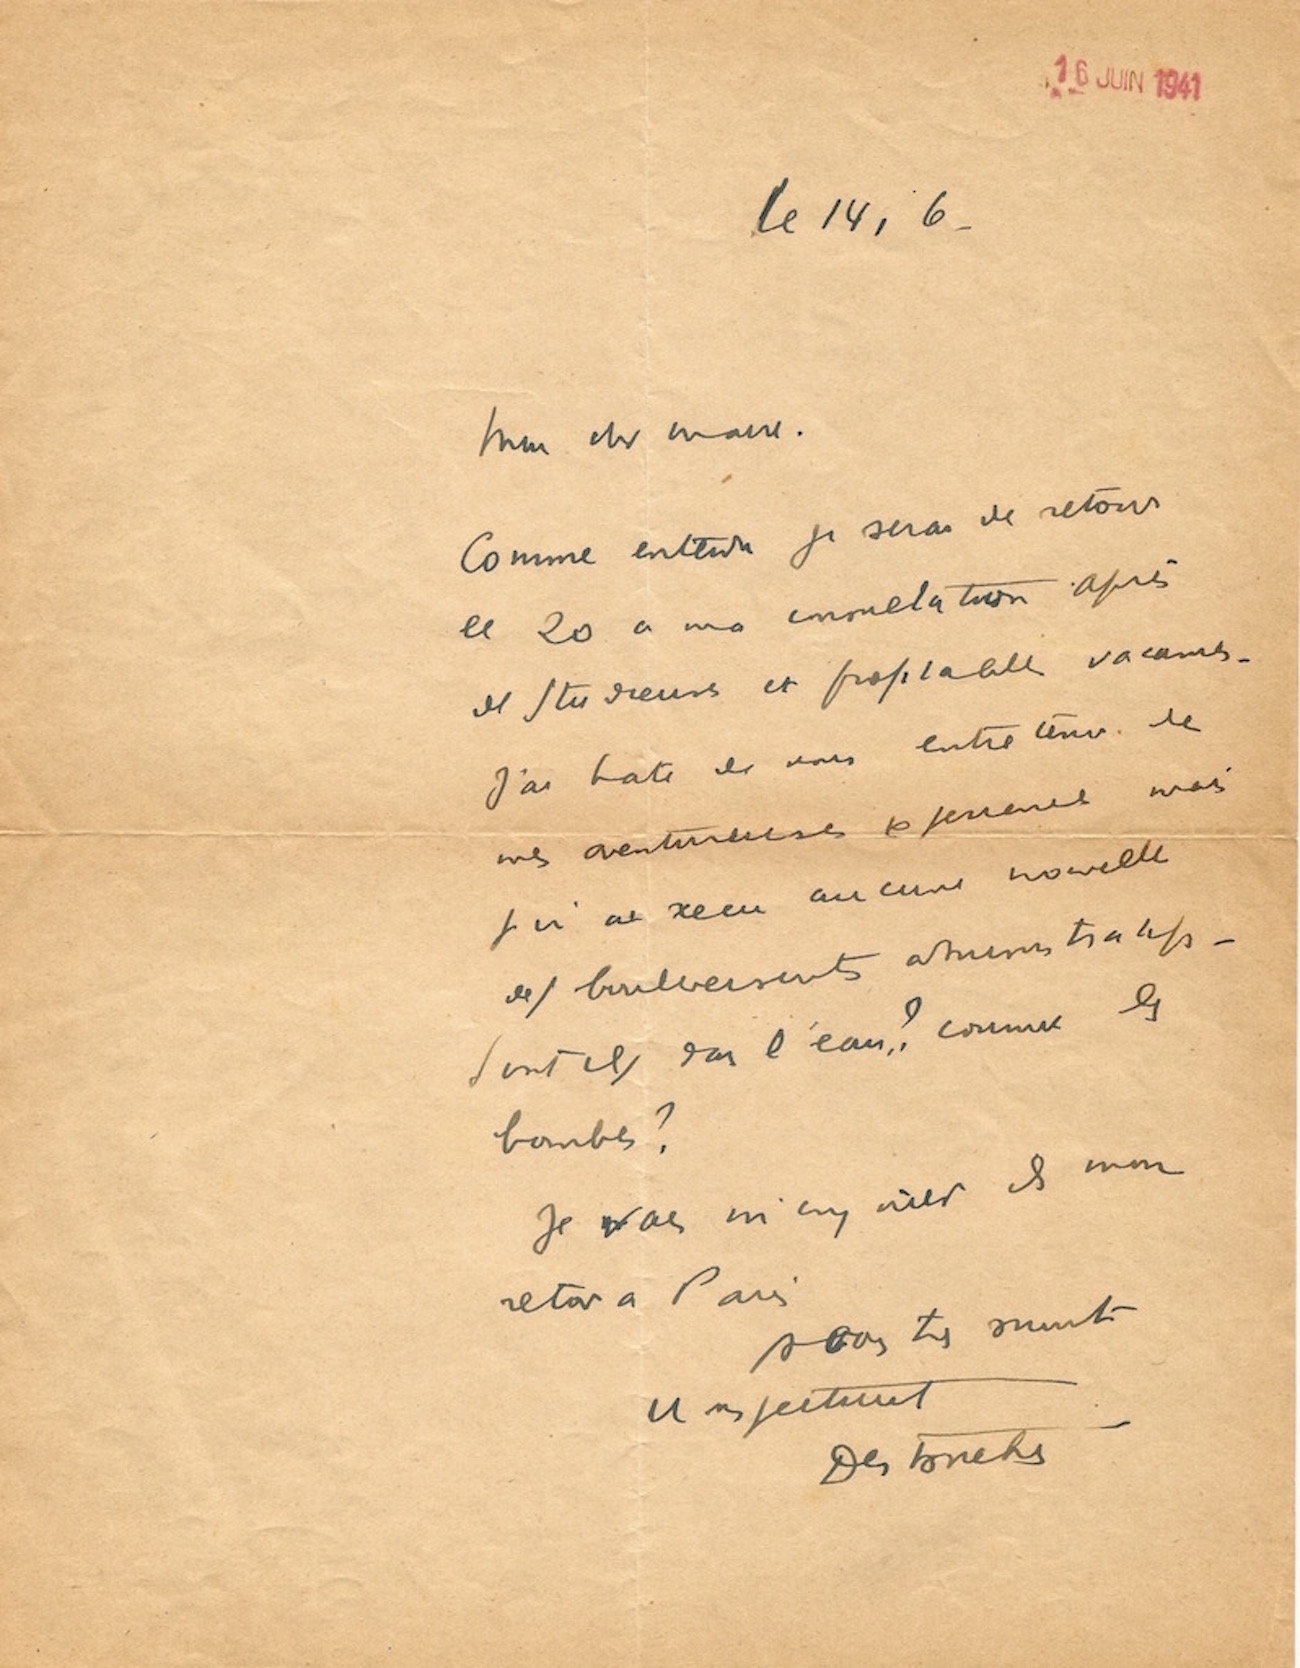 16 JUIN 1941
le 14, 6_
Mon cher maire.
Comme entendu je serai de retour
le 20 a ma consultation après
de studieuses et profitables vacances_
J'ai hate de vous entretenir de
mes aventureuses experiences mais
je n'ai recu aucune nouvelle
des bouleversements administratifs_
Sont ils dans l'eau? comme les
bombes?
Je vais m'enquérir dès mon
retour a Paris
a vous très
et respectueusement
Destouches